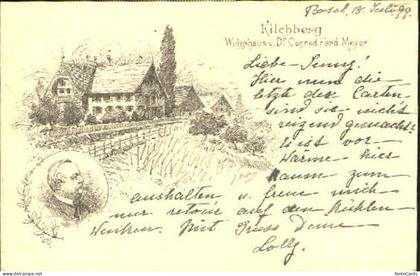 Basel, 18. July 99
Kilchberg
Wohnhaus v. Dr. Conrad Ferd. Meyer
Liebe
Hier nun die
letzte der Carten
sind sie nicht
reizend gemacht!
vor
Wärme hier
kaum zum
aushalten u. freue mich
nur retour auf den kühlen
Mit Gruss Deine
Lolly.